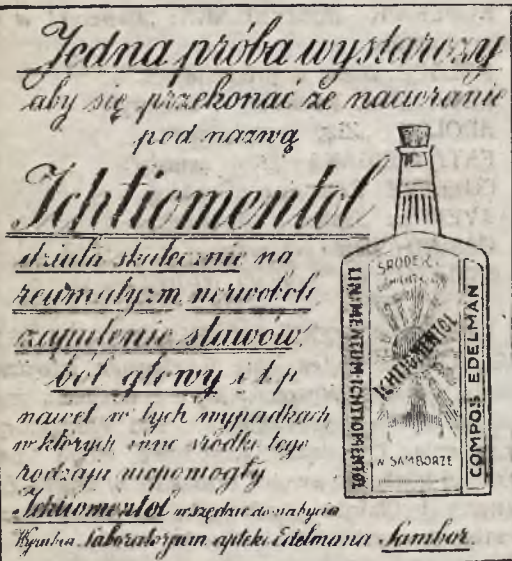 Jedna próba wystarczy
aby się przekonać że nacieranie
pod nazwą
Ichtiomentol
działa skutecznie na
reumatyzm, nerwobole
zapalenie stawów,
ból głowy i t. p
nawet w tych wypadkach
w których inne środki tego
rodzaju niepomogły
Ichtiomentol wszędzie do nabycia
Wyrabia Laboratorjum apteki Edelmana Sambor.
ŚRODEK
LINIMENTUM ICHTIOMENTOL
ICHTIOMENTOL
COMPOS EDELMAN
W SAMBORZE